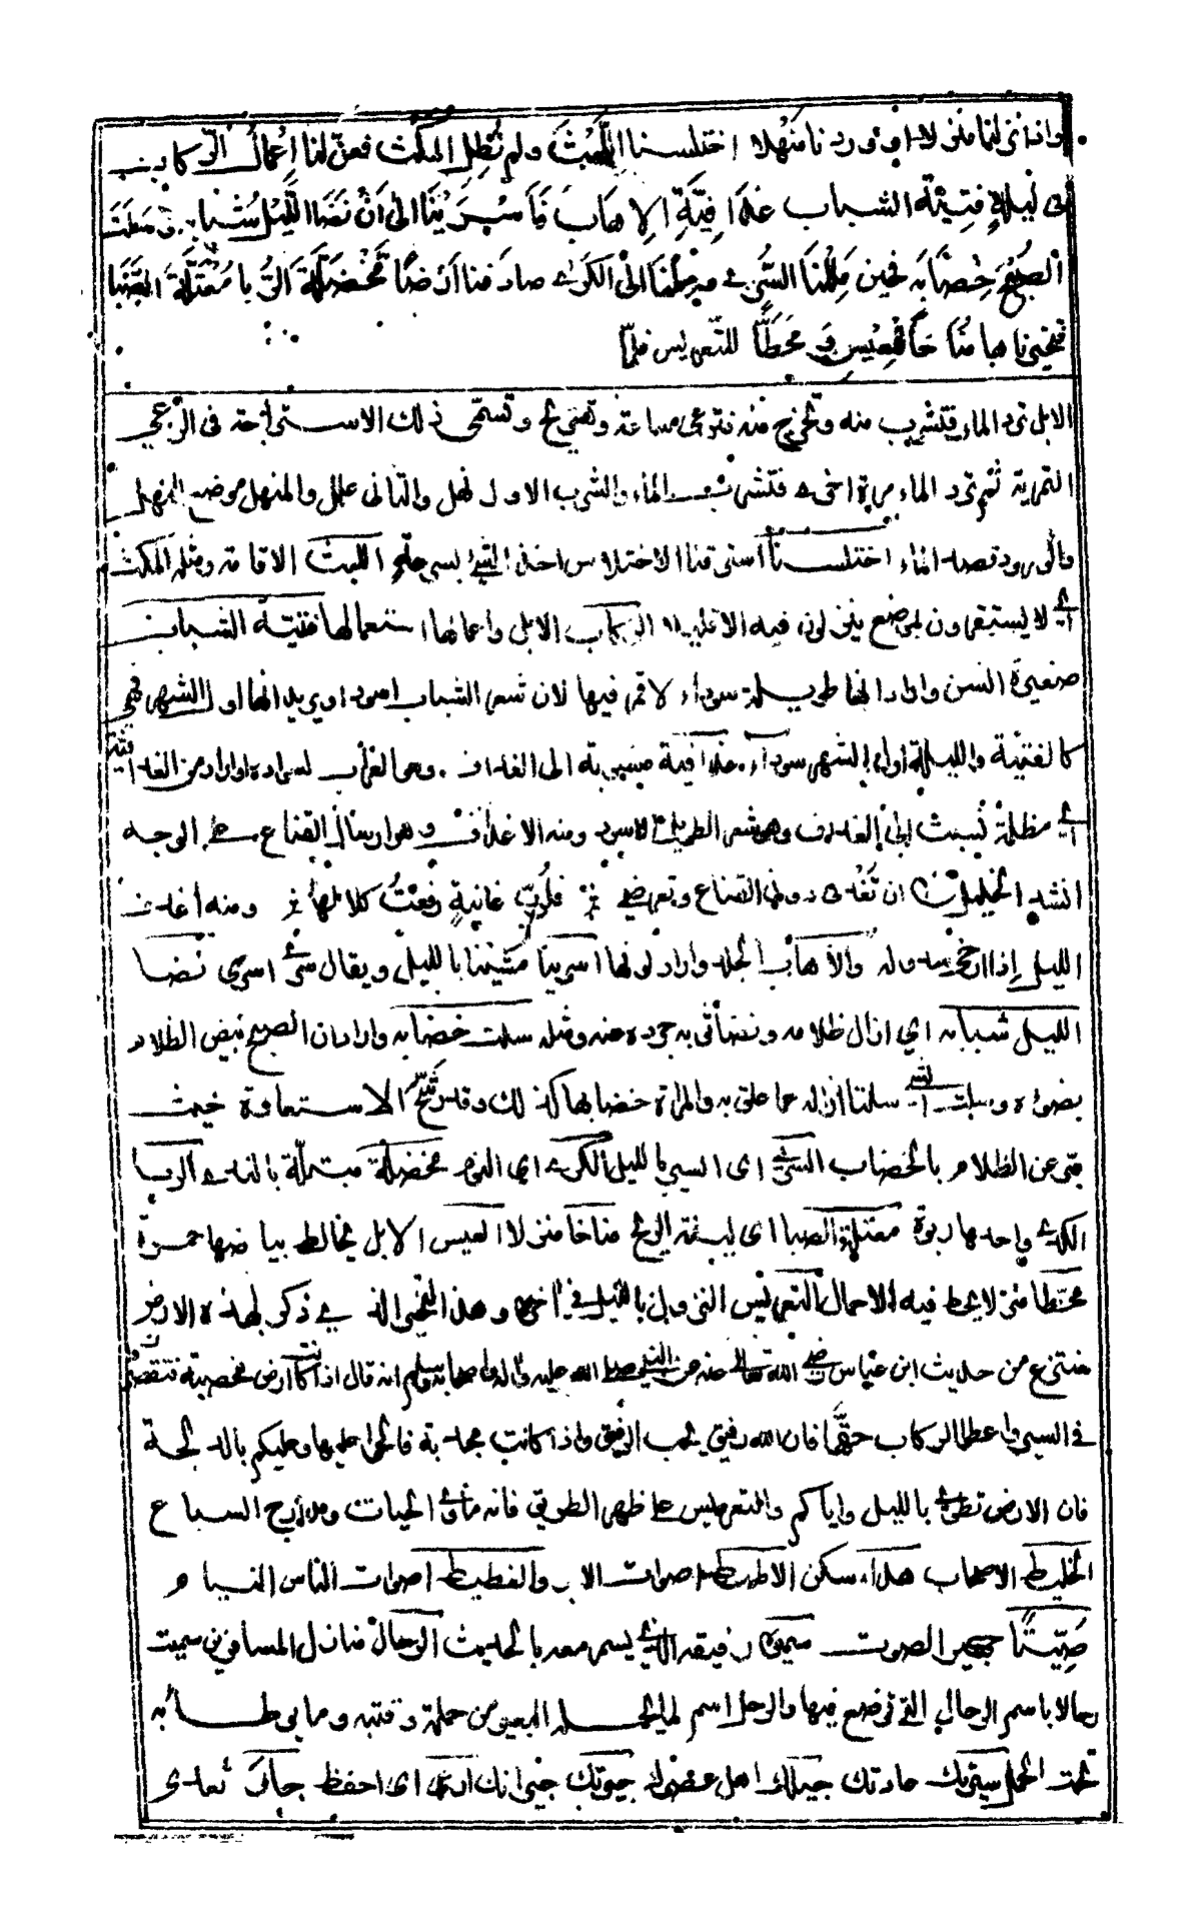 واذا نزلنا منزلا او وردنا منهلا اختلسنا اللبث ولم نطل المكث فعن لنا اعمال الركاب
في ليلة فتية الشباب غدافية الاهاب فاسرينا الى ان نضا الليل شبابه وسلت
الصبح خضابه فحين مللنا السرى وملنا الى الكرى صادفنا ارضا مخضلة الربا معتلة الصبا
فتخيرناها مناخا للعيس ومحطا للتعريس فلما
الابل ترد الماء فتشرب منه وتخرج منه فترعى ساعة وتضحى وتسمى ذلك الاستراحة في الرعي
التندية ثم ترد الماء مرة اخرى فتشرب الماء والشرب الاول نهل والثاني علل والمنهل موضع المنهل
والورود قصد الماء اختلسنا استرقنا الاختلاس اخذ الشئ بسرعة اللبث الاقامة ومثله المكث
اي لا يستقرون بموضع ينزلون فيه الا قليلا الركاب الابل واعمالها استعمالها فتية الشباب
صغيرة السن واراد انها طويلة سوداء لا قمر فيها لان شعر الشباب اسود او يريد انها اول الشهر فهي
كالفتية والليلة اول الشهر سوداء غدافية منسوبة الى الغداف وهو الغراب لسواده او اراد من الغدافية
اي مظلمة نسبت الى الغداف وهو شعر الطويل الاسود ومنه الاغداف وهو ارسال القناع على الوجه
انشد الخليل ان تغدفي دوني القناع وتعرضي فلرب غانية رفعت كلامها ومنه اغدف
الليل اذا ارخى سدوله والاهاب الجلد واراد لونها اسرينا مشينا بالليل ويقال سرى اسرى نضا
الليل شبابه اي ازال ظلامه ونضا ثوبه جرده عنه ومثله سلت خضابه واراد ان الصبح بيض الظلام
بضوئه وسلت الشئ سلتا ازاله عما علق به والمرأة خضابها كذلك وقد رشح الاستعارة حيث
عبر عن الظلام بالخضاب السرى اي السير بالليل الكرى اي النوم مخضلة مبتلة بالندى الربا
الكدى واحدها ربوة معتلة الصبا اي لينة الريح مناخا منزلا العيس الابل يخالط بياضها حمرة
محطا منزلا يحط فيه الاحمال التعريس النزول بالليل في اخره وهذا التخير الذي ذكر لهذه الارض
منتزع من حديث ابن عباس رضي الله تعالى عنه عن النبي صلى الله عليه وآله واصحابه وسلم انه قال اذا كانت ارض مخصبة فتقصروا
في السير واعطوا الركاب حقها فان الله رفيق يحب الرفق واذا كانت مجدبة فانجوا عليها وعليكم بالدلجة
فان الارض تطوى بالليل واياكم والتعريس على ظهر الطريق فانه مأوى الحيات ومدارج السباع
الخليط الاصحاب هدأ سكن الاطيط اصوات الابل والغطيط اصوات الناس النيام
صيتا جهير الصوت سميره رفيقه الذي يسمر معه بالحديث الرحال منازل المسافرين سميت
رحالا باسم الرحال التي توضع فيها والرحل اسم لما يحمله البعير من حمله وقتبه وما يوطأ به
تحت الحمل سيرتك عادتك جيلك اهل عصرك جيرتك جيرانك ارع اي احفظ جارك تعدى